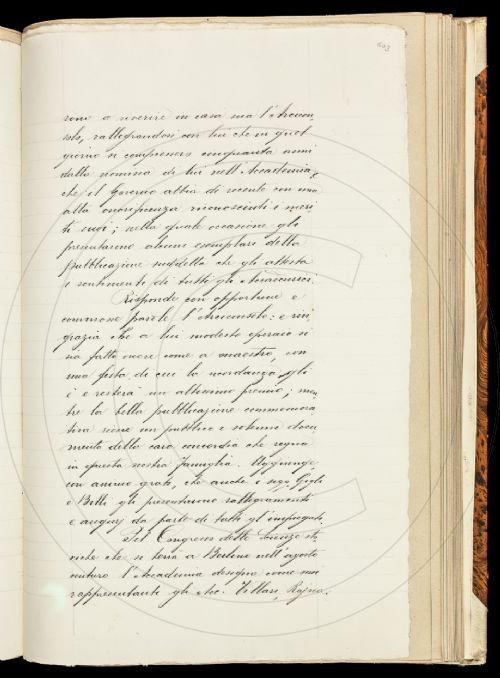 403
roni a riverire in casa sua l'Arcicon-
solo, rallegrandosi con lui che in quel
giorno si compiessero cinquanta anni
dalla nomina di lui nell'Accademia,
che il Governo abbia di recente con una
alta onorificenza riconosciuti i meri-
ti suoi; nella quale occasione gli
presentarono alcuni esemplari della
pubblicazione suddetta che gli attesta
i sentimenti di tutti gli Accademici.
Risponde con opportune e
commosse parole l'Arciconsolo: e rin-
grazia che a lui modesto operaio si
sia fatto onore come a maestro, con
una festa di cui la ricordanza gli
è e resterà un altissimo premio; men-
tre la bella pubblicazione commemora-
tiva riesce un pubblico e solenne docu-
mento della cara concordia che regna
in questa nostra famiglia. Aggiunge,
con animo grato, che anche i sigg. Gigli
e Belli gli presentarono rallegramenti
e augurj da parte di tutti gl'impiegati.
Pel Congresso delle Scienze sto-
riche che si terrà a Berlino nell'agosto
venturo l'Accademia designa come suoi
rappresentanti gli Acc. Villari, Rajna.